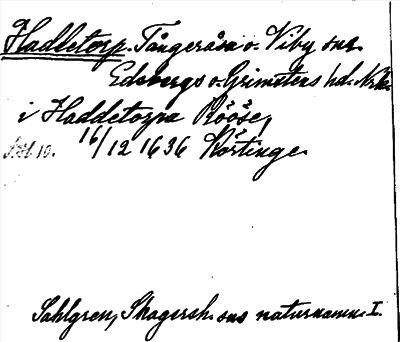 Haddetorp. Tångeråsa o. Viby snr.
Edsbergs o. Grimstens hd. Nrke.
i Haddetorpa Rööse,
16/12 1636 Körtinge.
S. 10.
Sahlgren, Skagersh. sns naturnamn I.